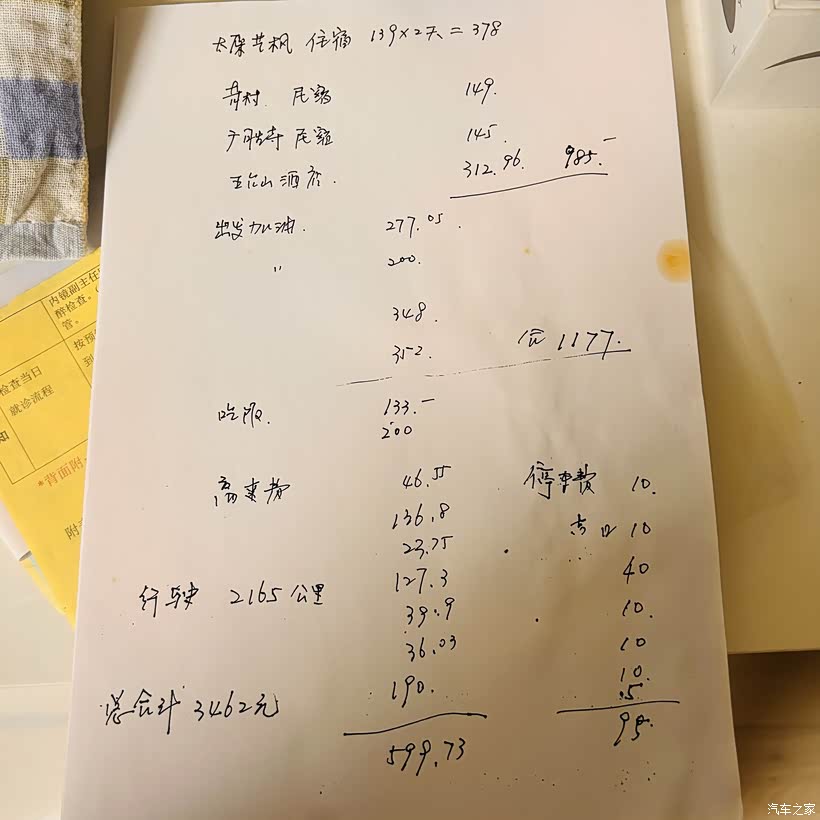 住宿 139×2天=378
民宿 149.
民宿 145.
五台山酒店. 312.96. 985.-
出发加油. 277.05.
〃 200.
348.
352. 合 1177.
吃饭. 133.-
200
高速费 46.55 停车费 10.
136.8 吉口 10
23.75
行驶 2165公里 127.3 40
39.9 10.
36.03 10
190. 10.
.5.
总合计 3462元
599.73 95.
内镜副主任
醉检查。
管。
按预
到
检查当日
就诊流程
知
*背面附
附
汽车之家